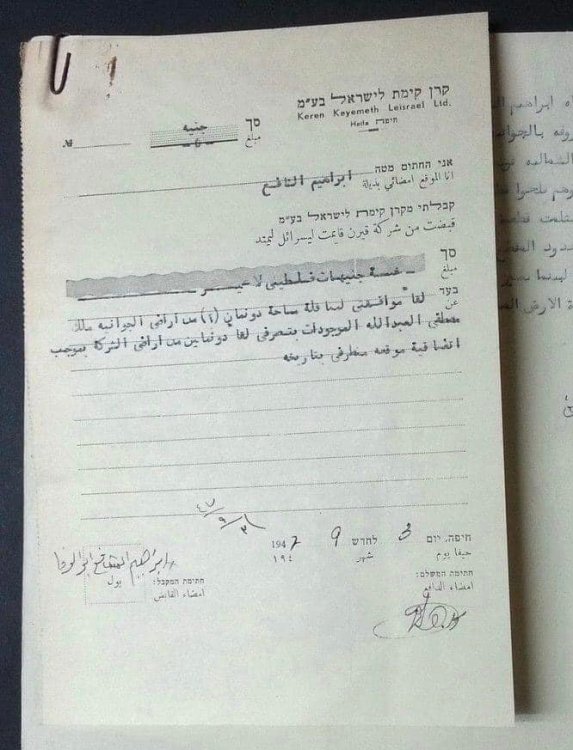 קרן קימת לישראל בע״מ
Keren Kayemeth Leisrael Ltd.
חיפה Haifa
סך جنيه №
مبلغ
אני החתום מטה ابراهيم الشافع
انا الموقع امضائي بذيله
קבלתי מקרן קימת לישראל בע״מ
قبضت من شركة قيرن قايمت ليسرائل ليمتد
סך
مبلغ خمسة جنيهات فلسطيني لا غير
בעד
عن لقا موافقتي لمناقلة مساحة دونمان (٢) من اراضي الجوانيه ملك
مصطفى العبدالله الموجودات بتصرفي لقا دونمين من اراضي الشركة بموجب
اتفاقية موقعه من طرفي بتاريخه
٣/٩/٤٧
חיפה, יום 3 לחדש 9 1947
حيفا يوم شهر ١٩٤
ابراهيم الشافع ابو الوفا
חתימת המקבל: חתימת המשלם:
بول
امضاء القابض امضاء الدافع